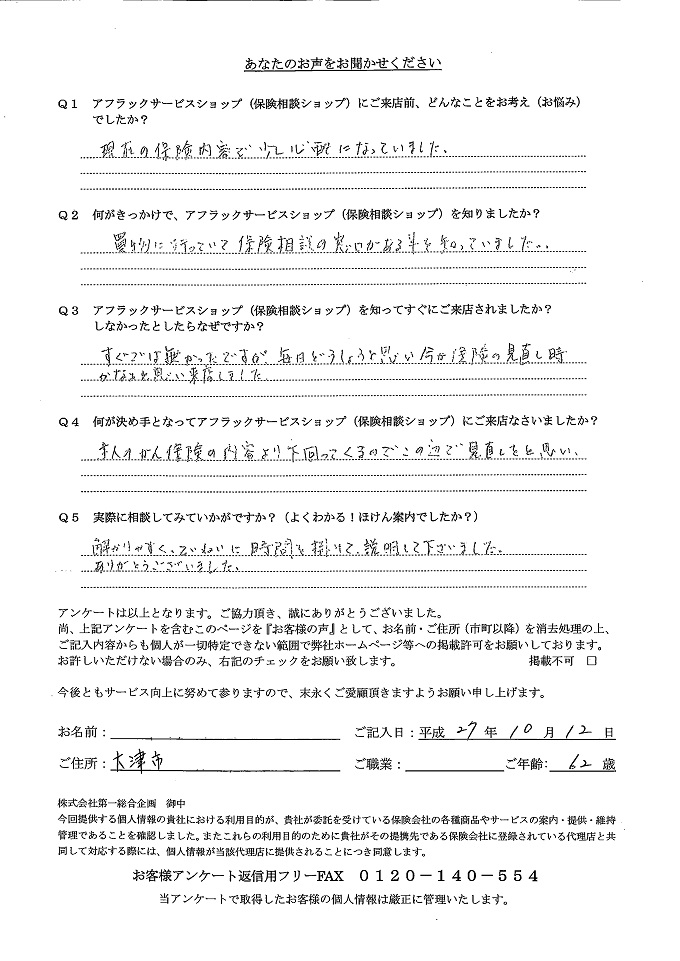 あなたのお声をお聞かせください
Q1 アフラックサービスショップ（保険相談ショップ）にご来店前、どんなことをお考え（お悩み）
でしたか？
現在の保険内容で少し心配になっていました。
Q2 何がきっかけで、アフラックサービスショップ（保険相談ショップ）を知りましたか？
買物に行っていて保険相談の窓口がある事を知っていました。
Q3 アフラックサービスショップ（保険相談ショップ）を知ってすぐにご来店されましたか？
しなかったとしたらなぜですか？
すぐでは無かったですが、毎日どうしようと思い今が保険の見直し時
かなぁと思い来店しました
Q4 何が決め手となってアフラックサービスショップ（保険相談ショップ）にご来店なさいましたか？
保険の内容より下回ってくるのでこの辺で見直しをと思い、
Q5 実際に相談してみていかがですか？（よくわかる！ほけん案内でしたか？）
解かりやすく、ていねいに時間を掛けて、説明して下さいました。
ありがとうございました。
アンケートは以上となります。ご協力頂き、誠にありがとうございました。
尚、上記アンケートを含むこのページを『お客様の声』として、お名前・ご住所（市町以降）を消去処理の上、
ご記入内容からも個人が一切特定できない範囲で弊社ホームページ等への掲載許可をお願いしております。
お許しいただけない場合のみ、右記のチェックをお願い致します。 掲載不可 □
今後ともサービス向上に努めて参りますので、末永くご愛顧頂きますようお願い申し上げます。
お名前： ご記入日：平成 27 年 10 月 12 日
ご住所：大津市 ご職業： ご年齢： 62 歳
株式会社第一総合企画 御中
今回提供する個人情報の貴社における利用目的が、貴社が委託を受けている保険会社の各種商品やサービスの案内・提供・維持
管理であることを確認しました。またこれらの利用目的のために貴社がその提携先である保険会社に登録されている代理店と共
同して対応する際には、個人情報が当該代理店に提供されることにつき同意します。
お客様アンケート返信用フリーFAX 0120－140－554
当アンケートで取得したお客様の個人情報は厳正に管理いたします。